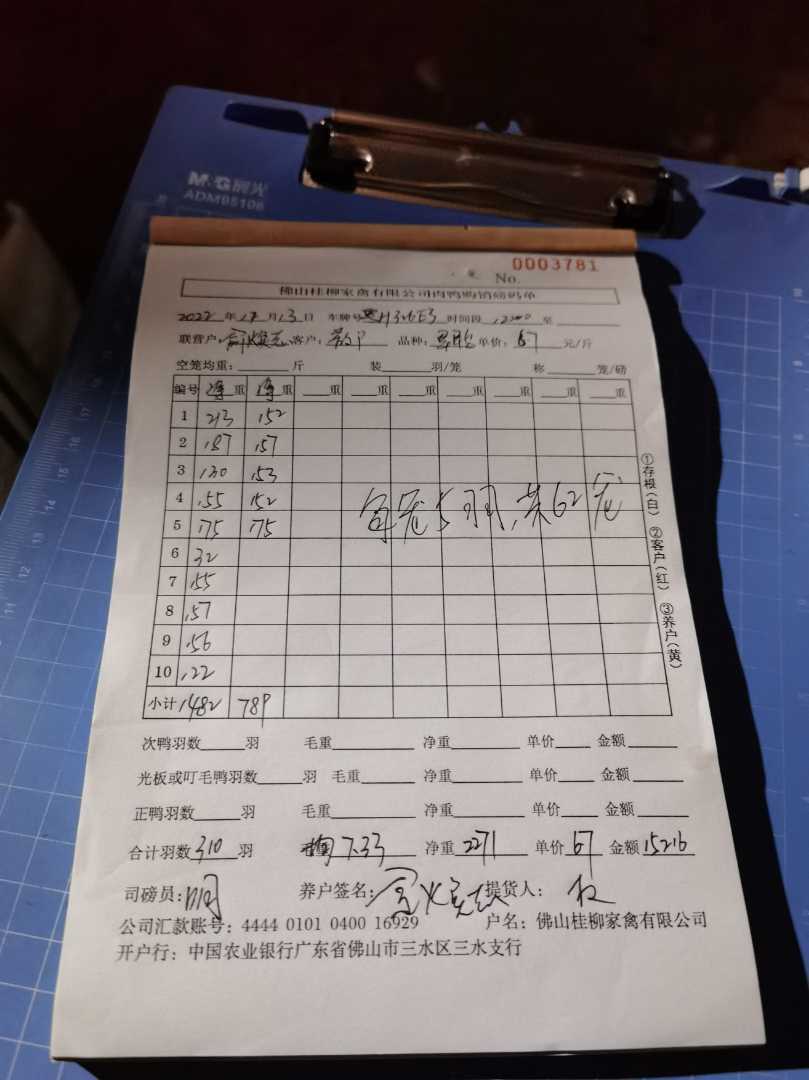 M&G 晨光
ADM95106
0003781
No.
佛山桂柳家禽有限公司肉鸭购销磅码单
2022年12月13日 车牌号 时间段 12:00 至
联营户: 客户:散户 品种: 单价:6.7 元/斤
空笼均重: 斤 装 羽/笼 称 笼/磅
编号 净重 净重 重 重 重 重 重 重 重
1 213 152
2 187 157
3 130 153
4 155 152
5 175 175
每笼5羽,共62笼
6 32
7 155
8 157
9 156
10 122
小计 1482 789
①存根(白) ②客户(红) ③养户(黄)
次鸭羽数 羽 毛重 净重 单价 金额
光板或叮毛鸭羽数 羽 毛重 净重 单价 金额
正鸭羽数 羽 毛重 净重 单价 金额
合计羽数 310 羽 均 7.33 净重 2271 单价 6.7 金额 15216
司磅员: 养户签名: 提货人:
公司汇款账号: 4444 0101 0400 16929 户名: 佛山桂柳家禽有限公司
开户行: 中国农业银行广东省佛山市三水区三水支行